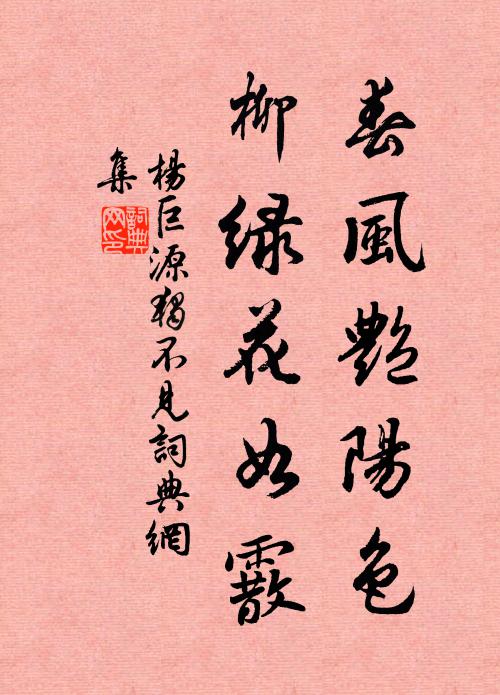 春風艷陽色
柳绿花如霰
楊巨源獨不見詞典網
集
詞典
网印